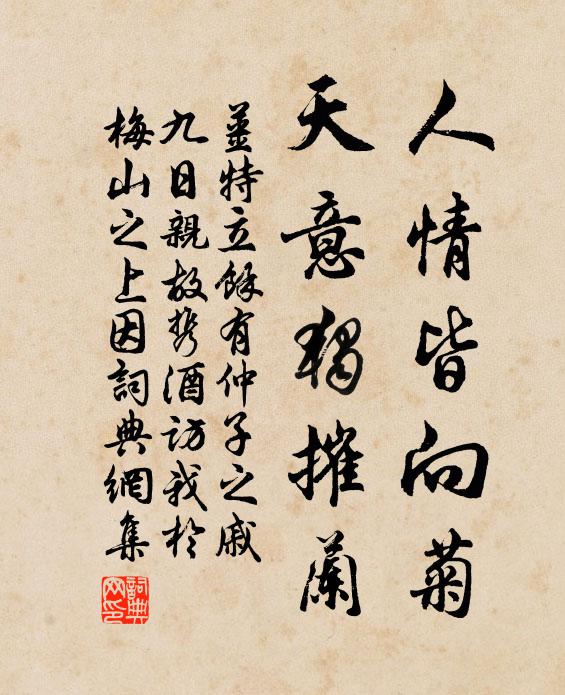 人情皆向菊
天意獨摧蘭
薑特立餘有仲子之戚
九日親故携酒訪我於
梅山之上因詞典網集
詞典
文印